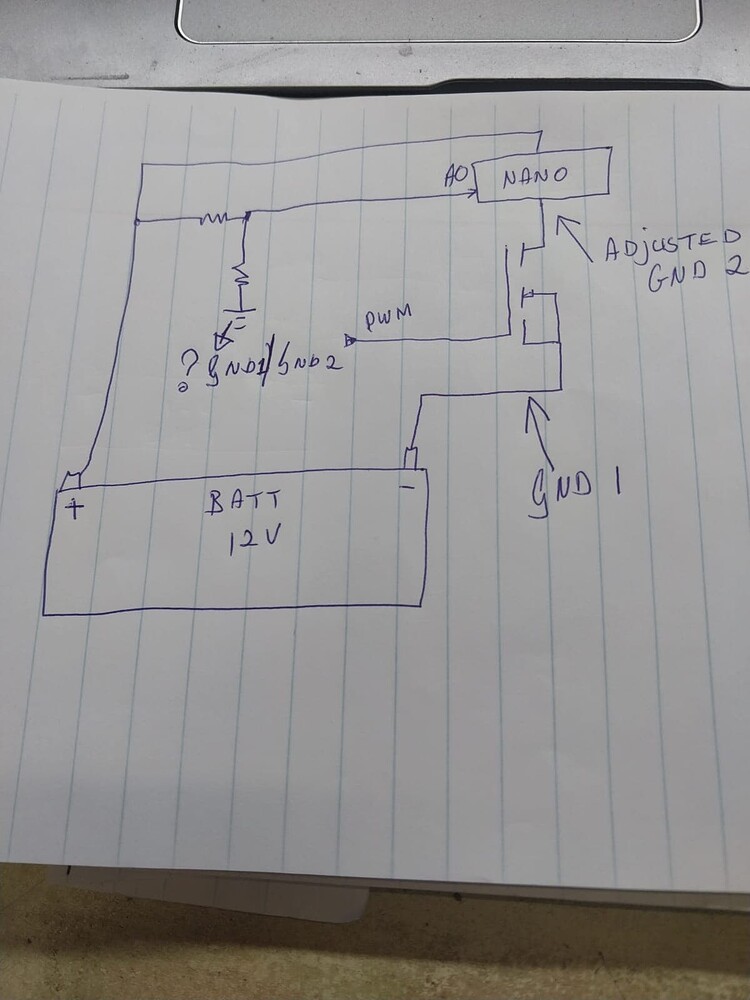 A0
NANO
ADJUSTED
GND 2
PWM
? GND1/GND2
+
-
BATT
12V
GND 1